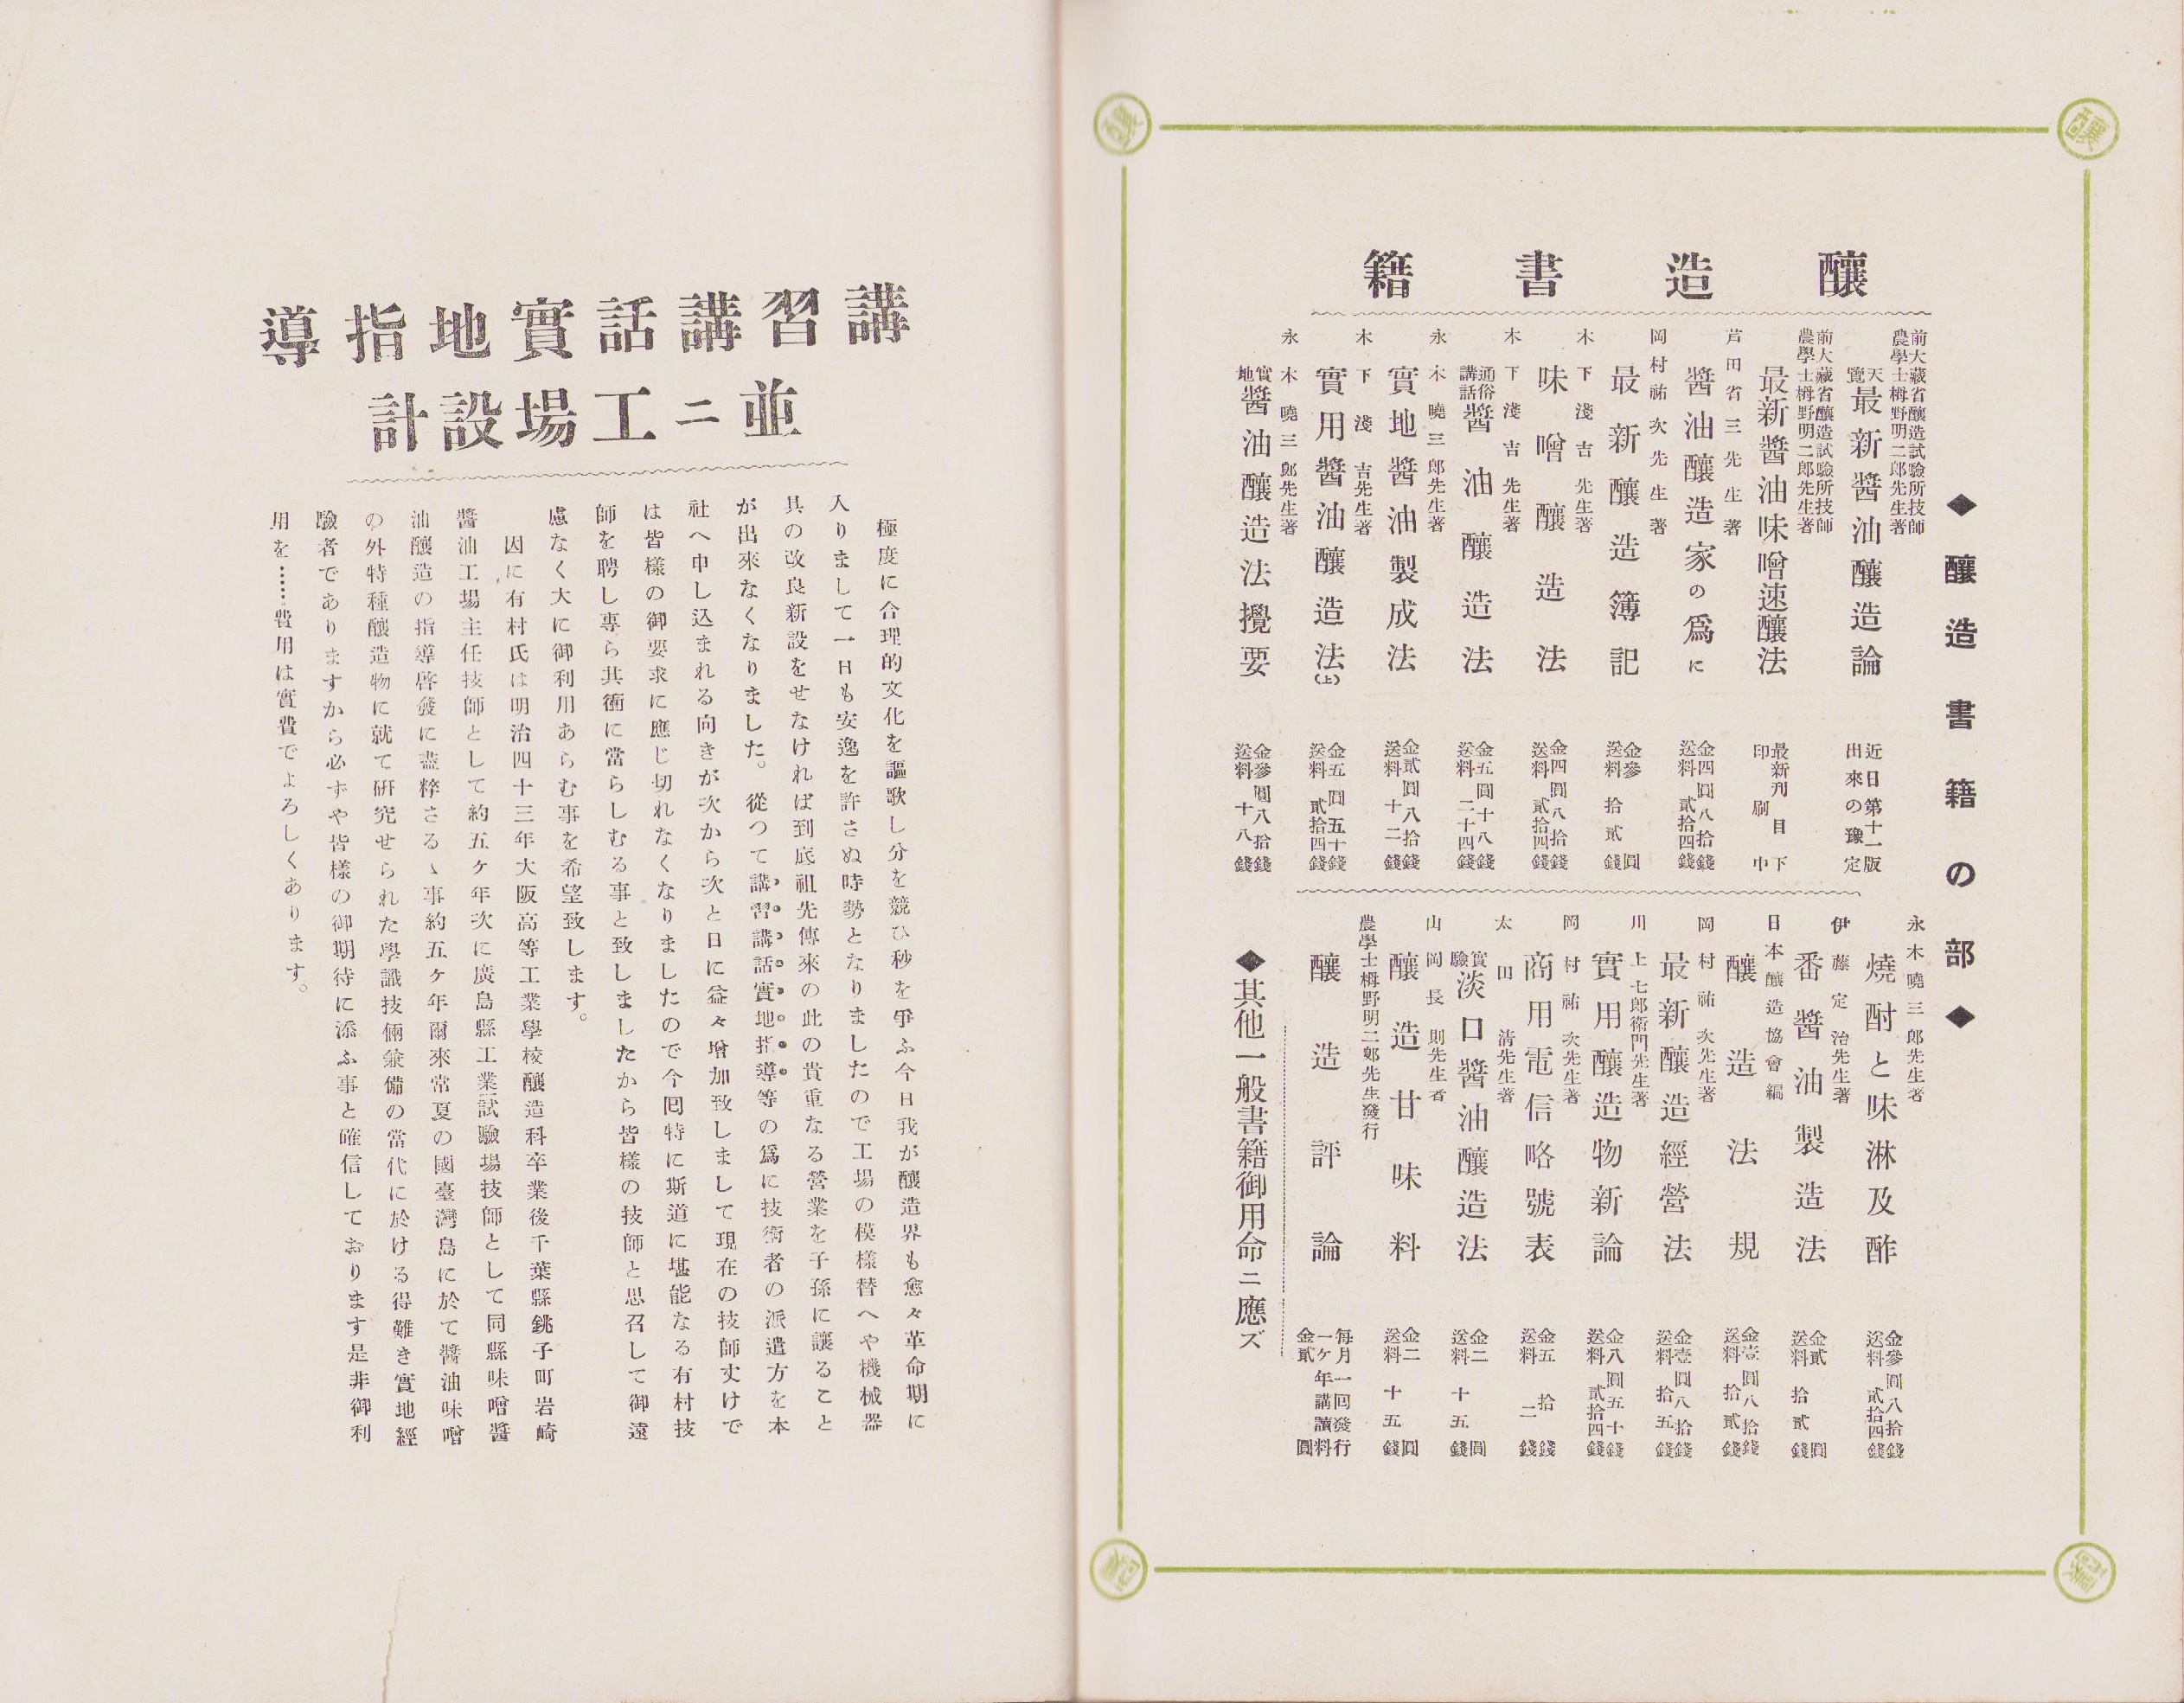 ◆釀造書籍の部◆
釀造書籍
前大藏省釀造試驗所技師
農學士栂野明二郎先生著
天覽最新醬油釀造論
近日第十一版
出來の豫定
前大藏省釀造試驗所技師
農學士栂野明二郎先生著
最新醬油味噌速釀法
最新刊目下
印刷中
芦田省三先生著
醬油釀造家の爲に
金四圓八拾錢
送料貳拾四錢
岡村祐次先生著
最新釀造簿記
金參圓
送料拾貳錢
木下淺吉先生著
味噌釀造法
金四圓八拾錢
送料貳拾四錢
木下淺吉先生著
通俗講話醬油釀造法
金五圓十八錢
送料二十四錢
永木曉三郎先生著
實地醬油製成法
金貳圓八拾錢
送料十二錢
木下淺吉先生著
實用醬油釀造法(上)
金五圓五十錢
送料貳拾四錢
永木曉三郎先生著
實地醬油釀造法攪要
金參圓八拾錢
送料十八錢
永木曉三郎先生著
燒酎と味淋及酢
金參圓八拾錢
送料貳拾四錢
伊藤定治先生著
番醬油製造法
金貳圓
送料拾貳錢
日本釀造協會編
釀造法規
金壹圓八拾錢
送料拾貳錢
岡村祐次先生著
最新釀造經營法
金壹圓八拾錢
送料拾五錢
川上七郎衛門先生著
實用釀造物新論
金八圓五十錢
送料貳拾四錢
岡村祐次先生著
商用電信略號表
金五拾錢
送料二錢
太田淸先生著
實驗淡口醬油釀造法
金二圓
送料十五錢
山岡長則先生著
釀造甘味料
金二圓
送料十五錢
農學士栂野明二郎先生發行
釀造評論
每月一回發行
一ケ年講讀料
金貳圓
◆其他一般書籍御用命ニ應ズ
講習講話實地指導
並ニ工場設計
極度に合理的文化を謳歌し分を競ひ秒を爭ふ今日我が釀造界も愈々革命期に
入りまして一日も安逸を許さぬ時勢となりましたので工場の模樣替へや機械器
具の改良新設をせなければ到底祖先傳來の此の貴重なる營業を子孫に讓ること
が出來なくなりました。從つて講習講話實地指導等の爲に技術者の派遣方を本
社へ申し込まれる向きが次から次と日に益々增加致しまして現在の技師丈けで
は皆樣の御要求に應じ切れなくなりましたので今囘特に斯道に堪能なる有村技
師を聘し專ら其衝に當らしむる事と致しましたから皆樣の技師と思召して御遠
慮なく大に御利用あらむ事を希望致します。
因に有村氏は明治四十三年大阪高等工業學校釀造科卒業後千葉縣銚子町岩崎
醬油工場主任技師として約五ケ年次に廣島縣工業試驗場技師として同縣味噌醬
油釀造の指導啓發に盡粹さるゝ事約五ケ年爾來常夏の國臺灣島に於て醬油味噌
の外特種釀造物に就て硏究せられた學識技倆兼備の當代に於ける得難き實地經
驗者でありますから必ずや皆樣の御期待に添ふ事と確信しております是非御利
用を……費用は實費でよろしくあります。